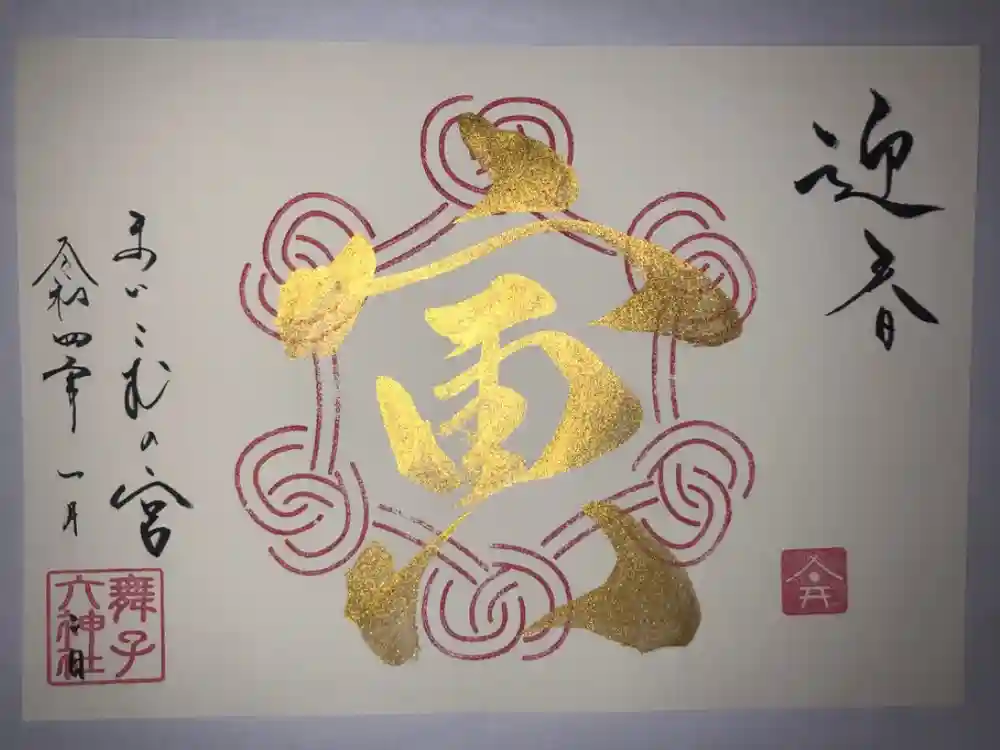 迎春
寅
まいこむの宮
令和四年一月 日
舞子
六神社